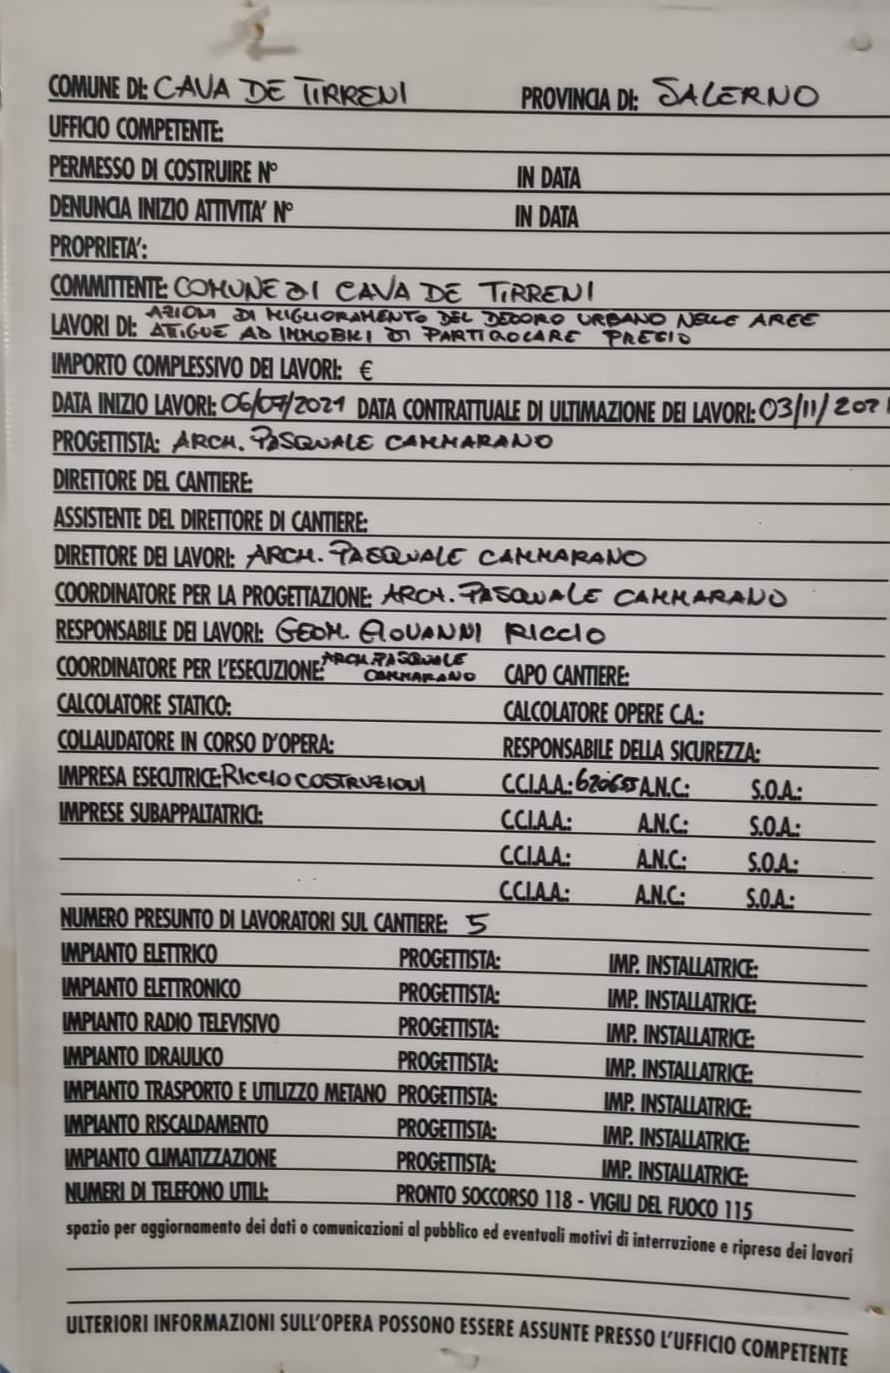 COMUNE DI: CAVA DE TIRRENI PROVINCIA DI: SALERNO
UFFICIO COMPETENTE:
PERMESSO DI COSTRUIRE N° IN DATA
DENUNCIA INIZIO ATTIVITA' N° IN DATA
PROPRIETA':
COMMITTENTE: COMUNE DI CAVA DE TIRRENI
LAVORI DI: AZIONI DI MIGLIORAMENTO DEL DECORO URBANO NELLE AREE
ATIGUE AD IMMOBILI DI PARTICOLARE PREGIO
IMPORTO COMPLESSIVO DEI LAVORI: €
DATA INIZIO LAVORI: 06/07/2021 DATA CONTRATTUALE DI ULTIMAZIONE DEI LAVORI: 03/11/2021
PROGETTISTA: ARCH. PASQUALE CAMMARANO
DIRETTORE DEL CANTIERE:
ASSISTENTE DEL DIRETTORE DI CANTIERE:
DIRETTORE DEI LAVORI: ARCH. PASQUALE CAMMARANO
COORDINATORE PER LA PROGETTAZIONE: ARCH. PASQUALE CAMMARANO
RESPONSABILE DEI LAVORI: GEOM. GIOVANNI RICCIO
COORDINATORE PER L'ESECUZIONE: ARCH. PASQUALE CAMMARANO CAPO CANTIERE:
CALCOLATORE STATICO: CALCOLATORE OPERE C.A.:
COLLAUDATORE IN CORSO D'OPERA: RESPONSABILE DELLA SICUREZZA:
IMPRESA ESECUTRICE: RICCIO COSTRUZIONI C.C.I.A.A.: 620655 A.N.C.: S.O.A.:
IMPRESE SUBAPPALTATRICI: C.C.I.A.A.: A.N.C.: S.O.A.:
C.C.I.A.A.: A.N.C.: S.O.A.:
C.C.I.A.A.: A.N.C.: S.O.A.:
NUMERO PRESUNTO DI LAVORATORI SUL CANTIERE: 5
IMPIANTO ELETTRICO PROGETTISTA: IMP. INSTALLATRICE:
IMPIANTO ELETTRONICO PROGETTISTA: IMP. INSTALLATRICE:
IMPIANTO RADIO TELEVISIVO PROGETTISTA: IMP. INSTALLATRICE:
IMPIANTO IDRAULICO PROGETTISTA: IMP. INSTALLATRICE:
IMPIANTO TRASPORTO E UTILIZZO METANO PROGETTISTA: IMP. INSTALLATRICE:
IMPIANTO RISCALDAMENTO PROGETTISTA: IMP. INSTALLATRICE:
IMPIANTO CLIMATIZZAZIONE PROGETTISTA: IMP. INSTALLATRICE:
NUMERI DI TELEFONO UTILI: PRONTO SOCCORSO 118 - VIGILI DEL FUOCO 115
spazio per aggiornamento dei dati o comunicazioni al pubblico ed eventuali motivi di interruzione e ripresa dei lavori
ULTERIORI INFORMAZIONI SULL'OPERA POSSONO ESSERE ASSUNTE PRESSO L'UFFICIO COMPETENTE